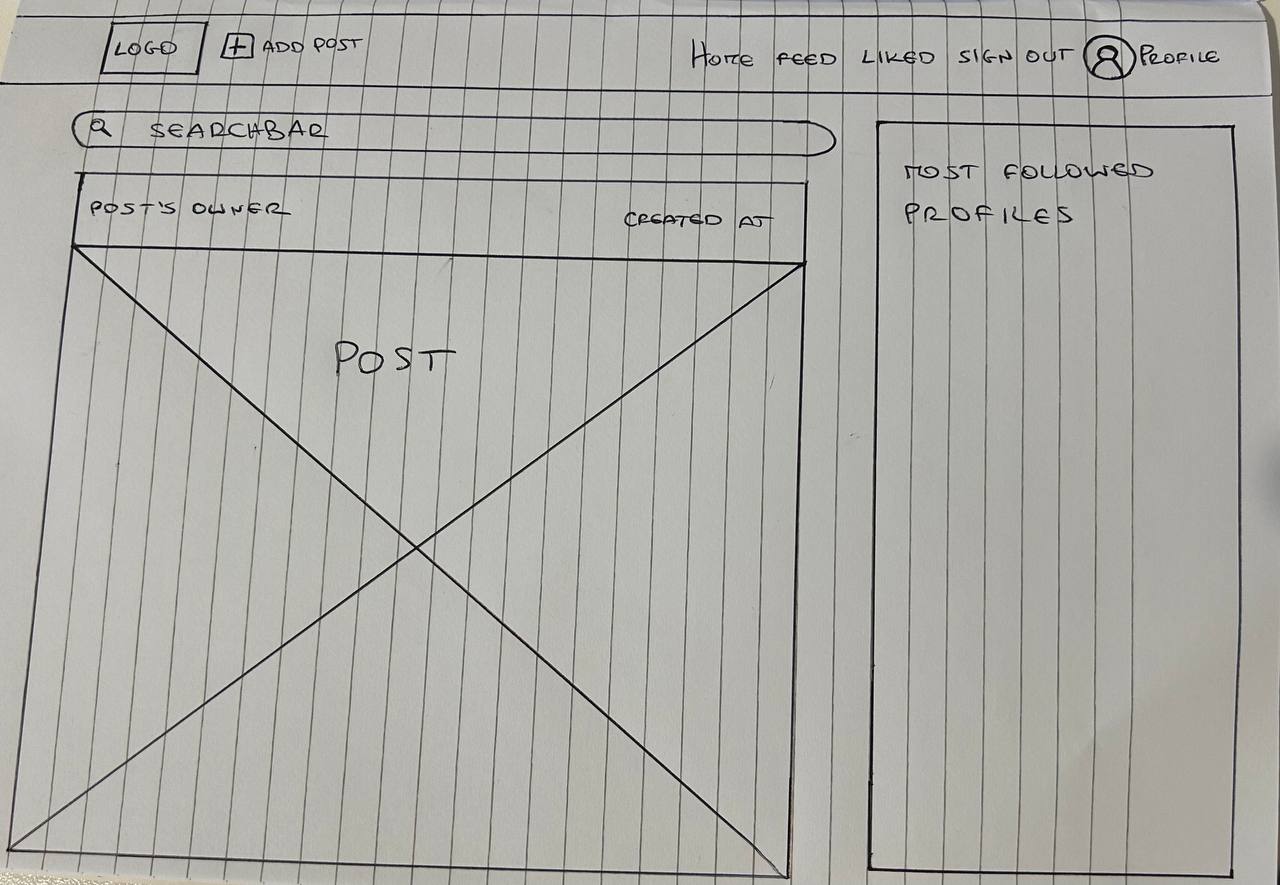 LOGO + ADD POST HOME FEED LIKED SIGN OUT PROFILE
SEARCHBAR
POST'S OWNER CREATED AT
POST
MOST FOLLOWED
PROFILES